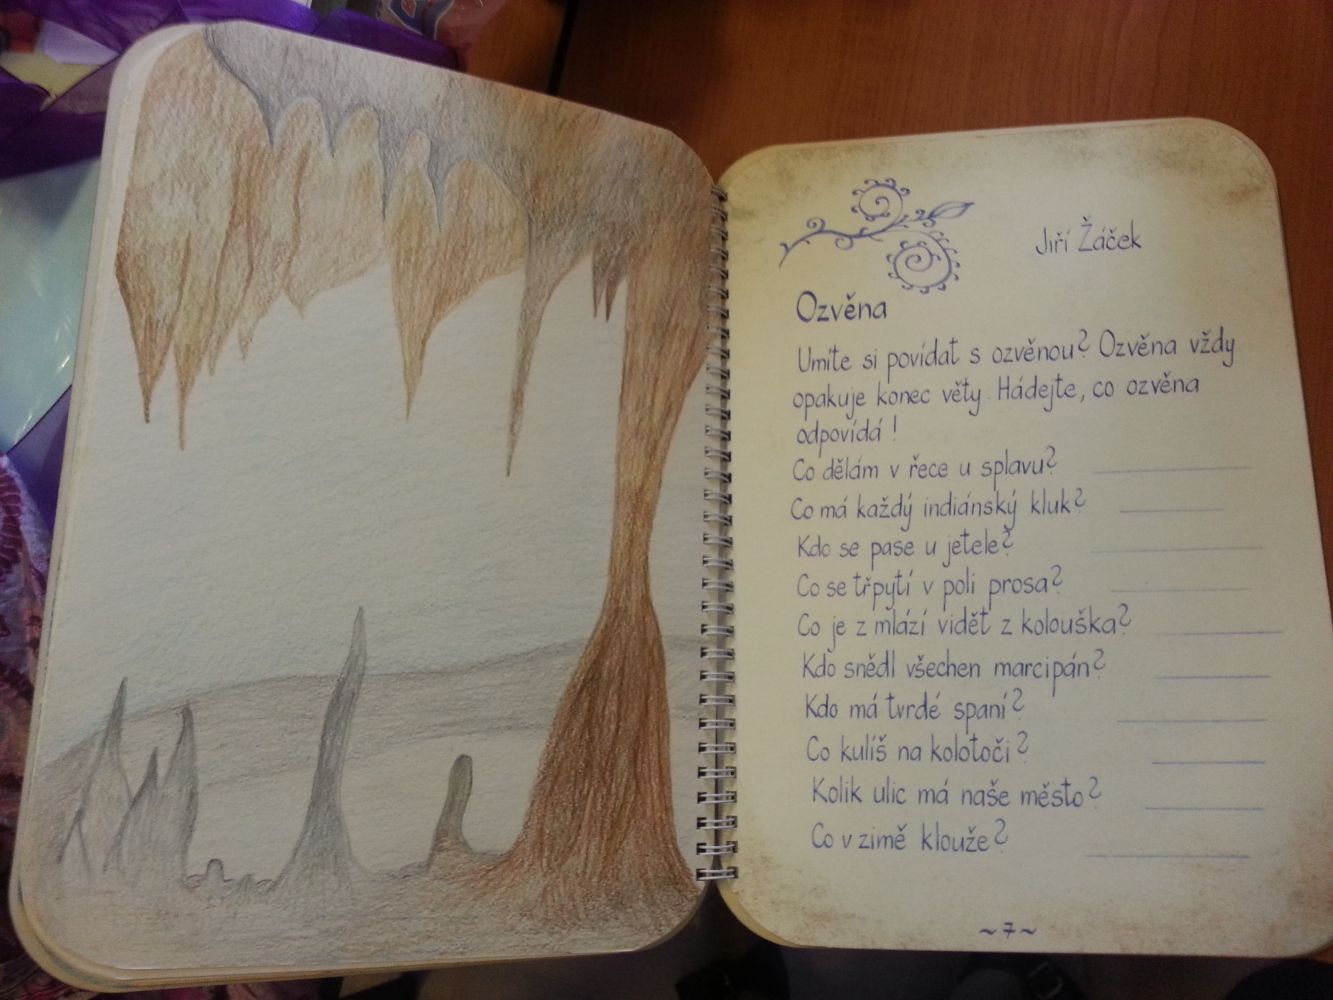 Jiří Žáček
Ozvěna
Umíte si povídat s ozvěnou? Ozvěna vždy
opakuje konec věty. Hádejte, co ozvěna
odpovídá!
Co dělám v řece u splavu?
Co má každý indiánský kluk?
Kdo se pase u jetele?
Co se třpytí v poli prosa?
Co je z mlází vidět z kolouška?
Kdo snědl všechen marcipán?
Kdo má tvrdé spaní?
Co kulíš na kolotoči?
Kolik ulic má naše město?
Co v zimě klouže?
~7~